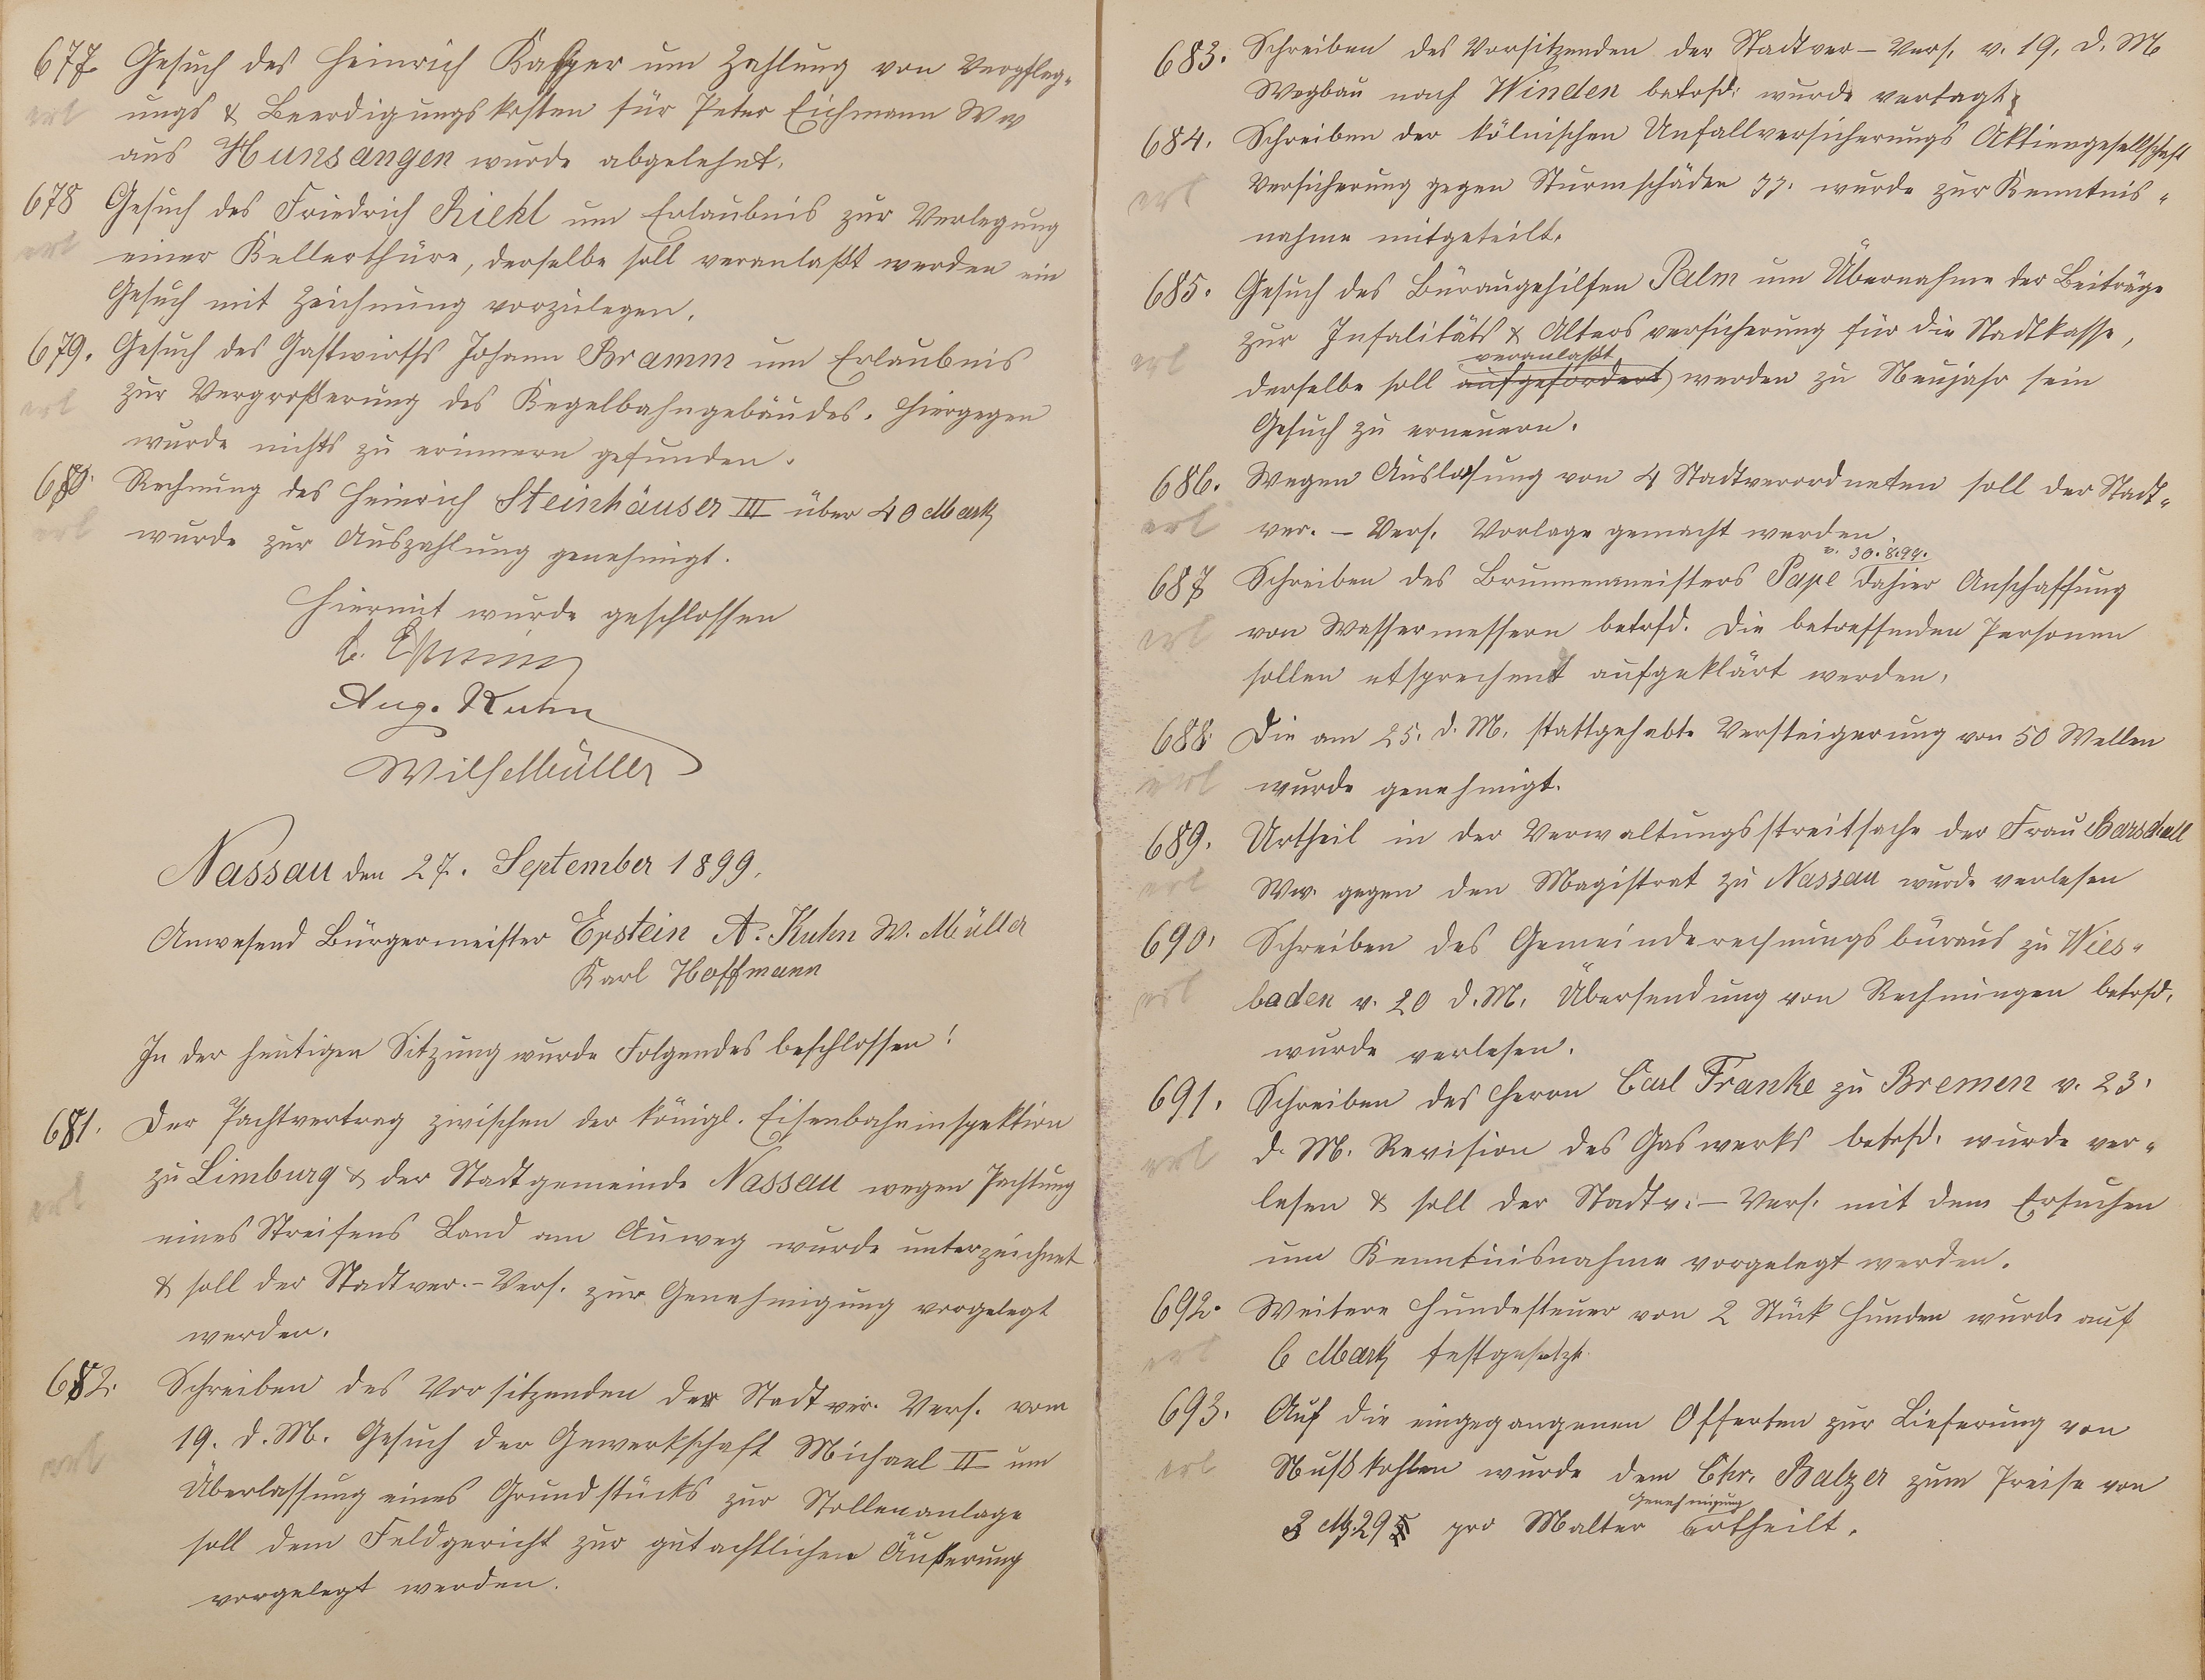 677. Gesuch des Heinrich Kasper um Zahlung von Verpfleg-
erl
ungs & Beerdigungskosten für Peter Eichmann Ww
aus Hunsangen wurde abgelehnt.
678 Gesuch des Friedrich Riehl um Erlaubnis zur Verlegung
erl
einer Kellerthüre, derselbe soll veranlaßt werden ein
Gesuch mit Zeichnung vorzulegen.
679. Gesuch des Gastwirths Johann Bramm um Erlaubnis
erl
zur Vergroßerung des Kegelbahngebäudes. Hiergegen
wurde nichts zu erinnern gefunden.
680. Rechnung des Heinrich Steinhäuser III über 40 Mark
erl
wurde zur Auszahlung genehmigt.
Hiermit wurde geschlossen
Aug. Kuhn
Wilh Müller
Nassau den 27. September 1899.
Anwesend Bürgermeister Epstein A. Kuhn W. Müller
Karl Hoffmann
In der heutigen Sitzung wurde Folgendes beschlossen!
681. Der Pachtvertrag zwischen der königl. Eisenbahninspektion
zu Limburg & der Stadtgemeinde Nassau wegen Pachtung
erl
eines Streifens Land am Auweg wurde unterzeichnet
& soll der Stadtver.- Vers. zur Genehmigung vorgelegt
werden.
682. Schreiben des Vorsitzenden der Stadtver. Vers. vom
19. d. M. Gesuch der Gewerkschaft Michael II um
erl
Überlassung eines Grundstücks zur Stollenanlage
soll dem Feldgericht zur gutachtlichen Äußerung
vorgelegt werden.
683. Schreiben des Vorsitzenden der Stadtver- Vers. v. 19. d. M
Wegbau nach Winden betrfd: wurde vertagt.
684. Schreiben der kölnischen Unfallversicherungs Aktiengesellschaft
erl
Versicherung gegen Sturmschäden pp. wurde zur Kenntnis-
nahme mitgeteilt.
685. Gesuch des Büraugehilfen Palm um Übernahme der Beiträge
zur Infalitäts & Altersversicherung für die Stadtkasse,
erl
veranlaßt
derselbe soll aufgefordert werden zu Neujahr sein
Gesuch zu erneuern.
686. Wegen Auslosung von 4 Stadtverordneten soll der Stadt-
erl
ver. - Vers. Vorlage gemacht werden.
v. 30.8.99.
687 Schreiben des Brunnenmeisters Pape dahier Anschaffung
erl
von Wassermessern betrfd. Die betreffenden Personen
sollen etsprechent aufgeklärt werden.
688. Die am 25. d. M. stattgehabte Versteigerung von 50 Wellen
erl
wurde genehmigt.
689. Urtheil in der Verwaltungsstreitsache der Frau Barschall
erl
Ww. gegen den Magistrat zu Nassau wurde verlesen
690. Schreiben des Gemeinderechnungsbüraus zu Wies-
erl
baden v. 20 d. M. Übersendung von Rechnungen betrfd.
wurde verlesen.
691. Schreiben des Herrn Carl Franke zu Bremen v. 23.
erl
d. M. Revision des Gaswerks betrfd. wurde ver-
lesen & soll der Stadtv.- Vers. mit dem Ersuchen
um Kenntnisnahme vorgelegt werden.
692. Weitere Hundesteuer von 2 Stück Hunden wurde auf
erl
6 Mark festgesetzt.
693. Auf die eingegangenen Offerten zur Lieferung von
erl
Nußkohlen wurde dem Chr. Balzer zum Preise von
Genehmigung
3 M. 29 pro Malter ertheilt.